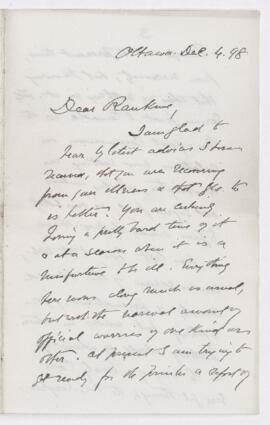 Ottawa. Dec. 4. 98
Dear Rankine,
I am glad to
hear by latest advices I have
received, that you are recovering
from your illness & that
is better. You are certainly
having a pretty hard time of it
& at a season when it is a
misfortune to be ill. Everything
here runs along much as usual,
but with the normal amount of
official worries of one kind or
other. At present I am trying to
get ready for the printer a report of